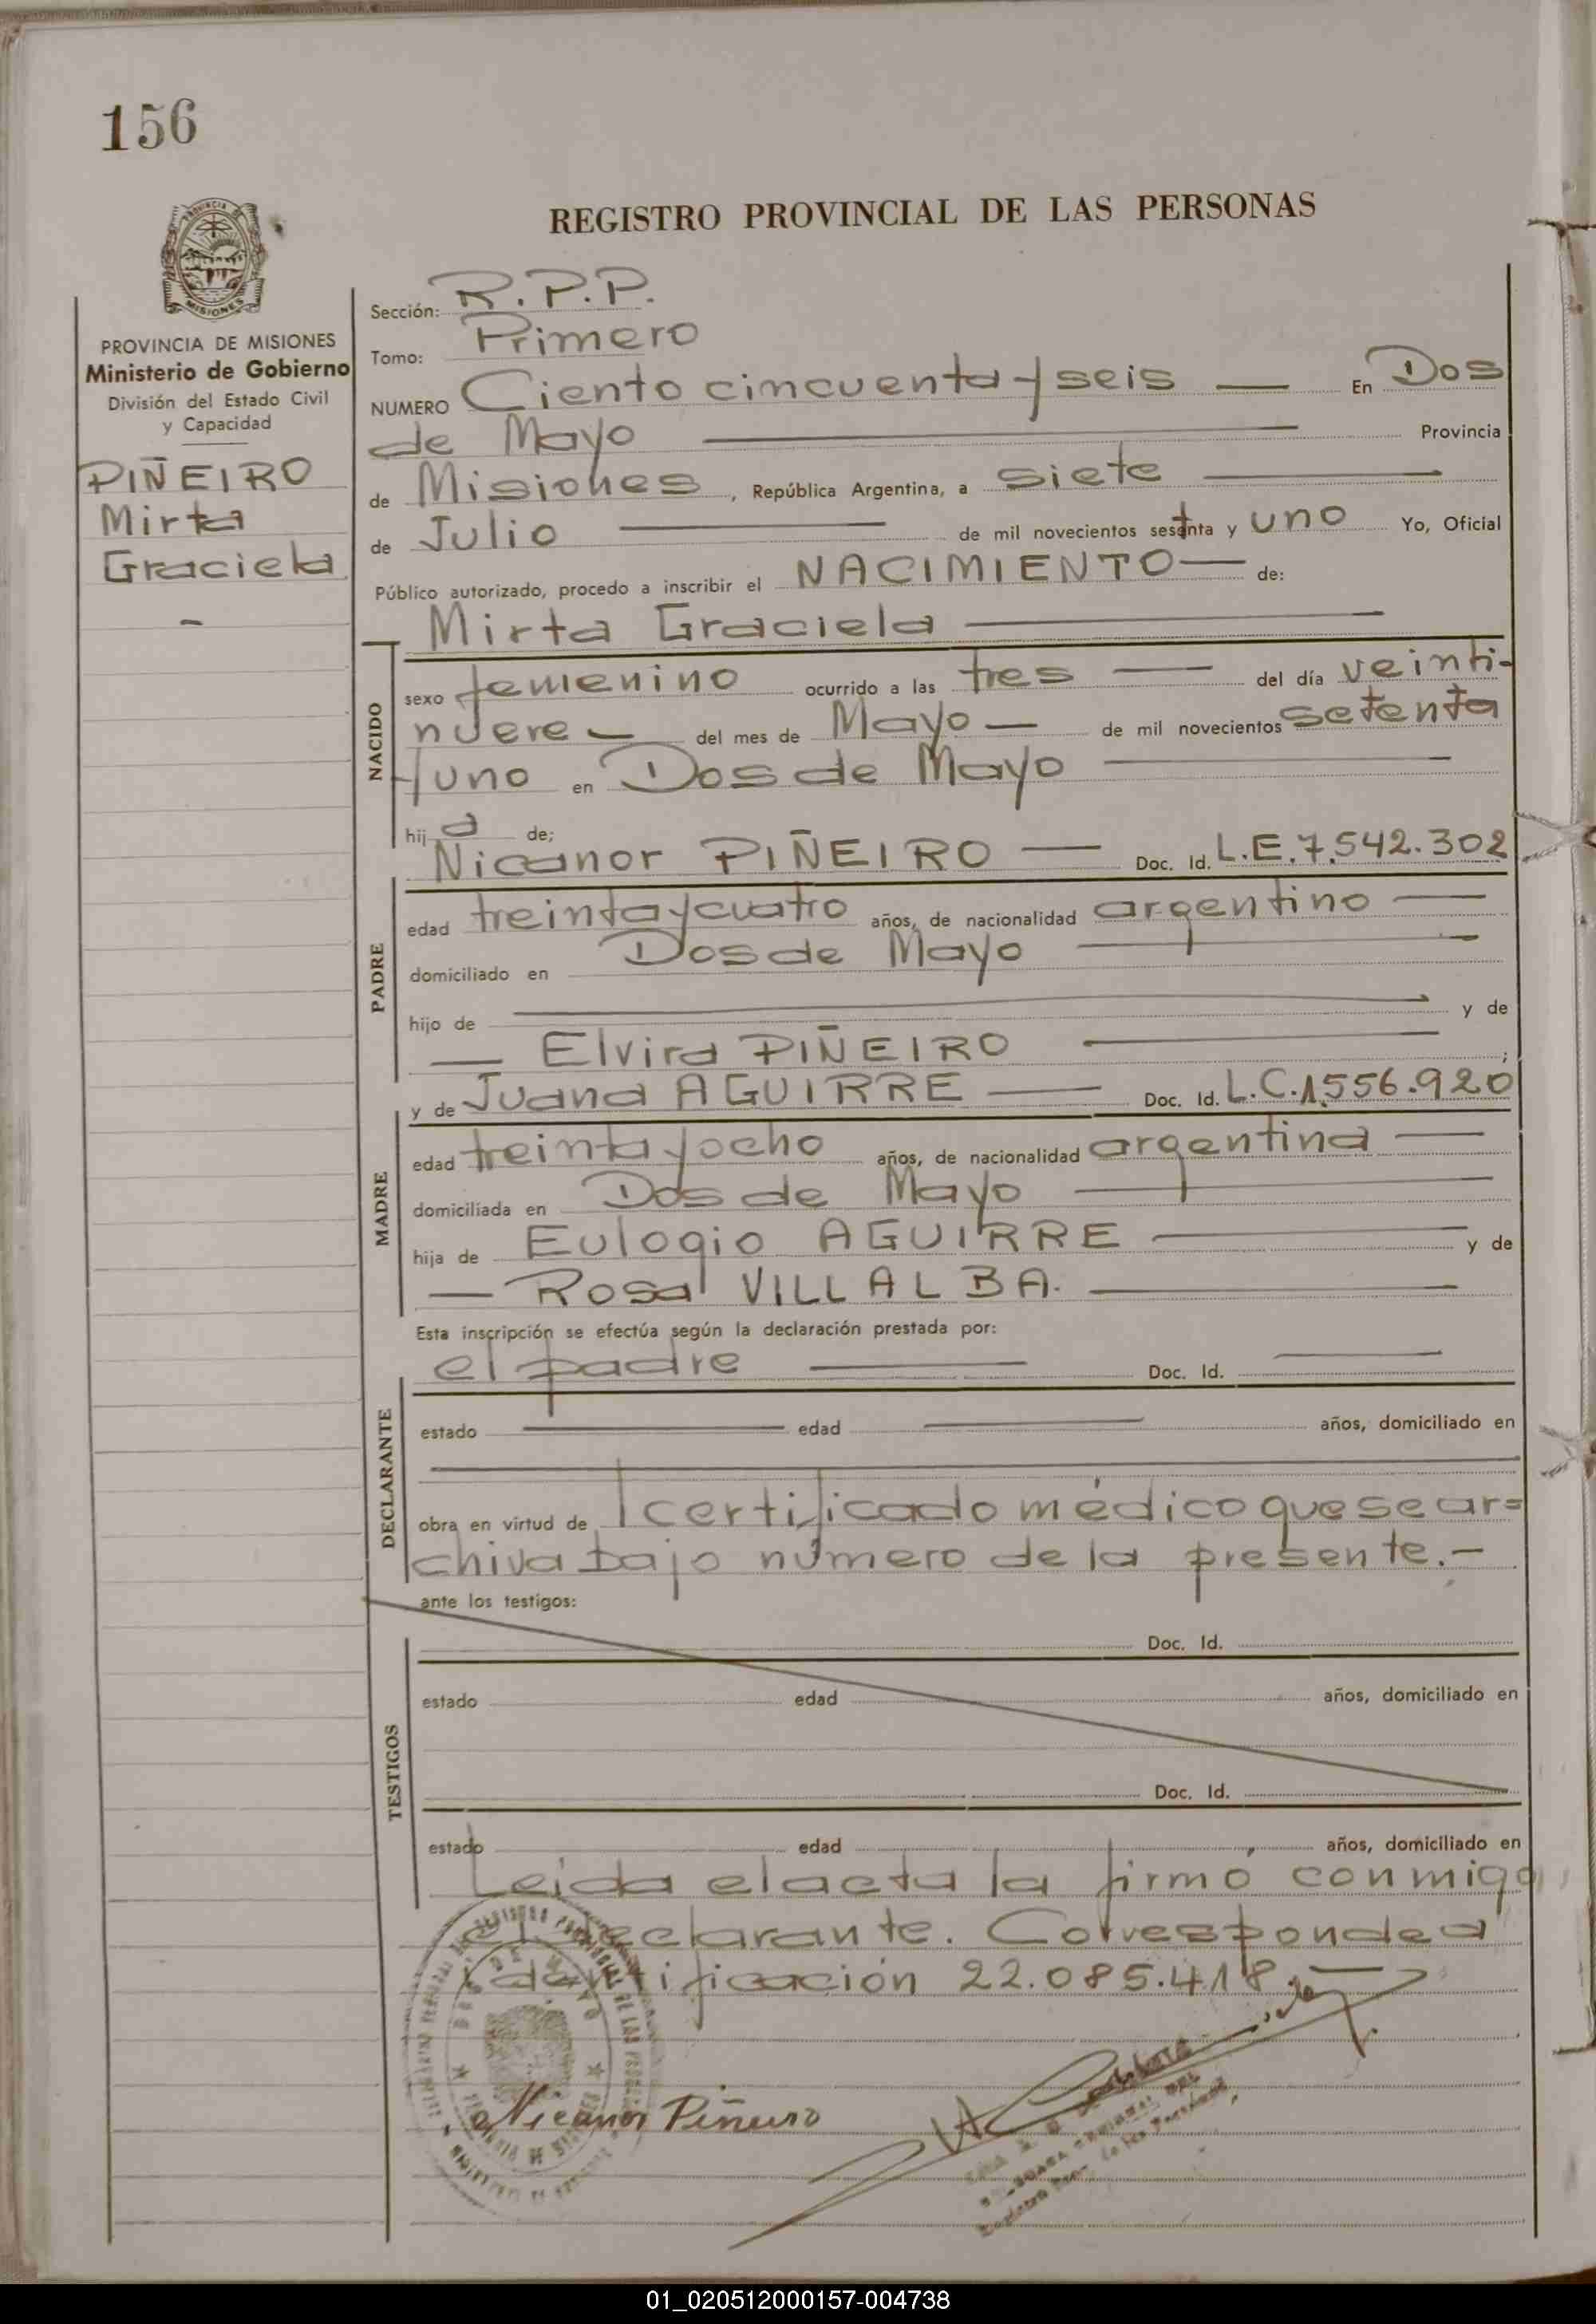 156
REGISTRO PROVINCIAL DE LAS PERSONAS
PROVINCIA DE
MISIONES
PROVINCIA DE MISIONES
Ministerio de Gobierno
División del Estado Civil
y Capacidad
PIÑEIRO
Mirta
Graciela
Sección: R.P.P.
Tomo: Primero
NUMERO Ciento cincuenta y seis En Dos
de Mayo Provincia
de Misiones, República Argentina, a siete
de Julio de mil novecientos sesenta y uno Yo, Oficial
Público autorizado, procedo a inscribir el NACIMIENTO de:
Mirta Graciela
NACIDO
sexo femenino ocurrido a las tres del día veinti-
nueve del mes de Mayo de mil novecientos setenta
y uno en Dos de Mayo
hija de;
Nicanor PIÑEIRO Doc. Id. L.E.7.542.302
PADRE
edad treinta y cuatro años, de nacionalidad argentino
domiciliado en Dos de Mayo
hijo de y de
Elvira PIÑEIRO ;
y de Juana AGUIRRE Doc. Id. L.C.1.556.920
MADRE
edad treinta y ocho años, de nacionalidad argentina
domiciliada en Dos de Mayo
hija de Eulogio AGUIRRE y de
Rosa VILLALBA.
Esta inscripción se efectúa según la declaración prestada por:
el padre Doc. Id.
DECLARANTE
estado edad años, domiciliado en
obra en virtud de certificado médico que se ar=
chiva bajo número de la presente.-
ante los testigos:
Doc. Id.
TESTIGOS
estado edad años, domiciliado en
Doc. Id.
estado edad años, domiciliado en
Leida el acta la firmó conmigo
el declarante. Corresponde a
identificación 22.085.418.
Nicanor Piñeiro
01_020512000157-004738